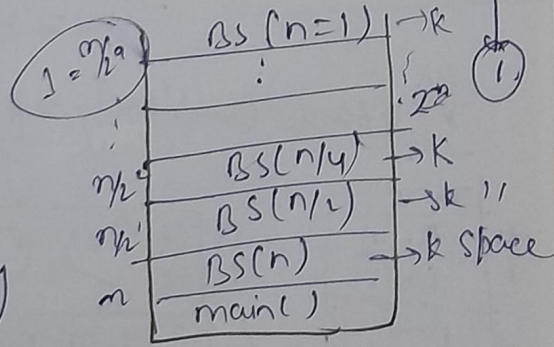 1 = n/2^a BS(n=1) → k
:
n/2² BS(n/4) → k
n/2¹ BS(n/2) → k "
BS(n) → k space
n main()
1.